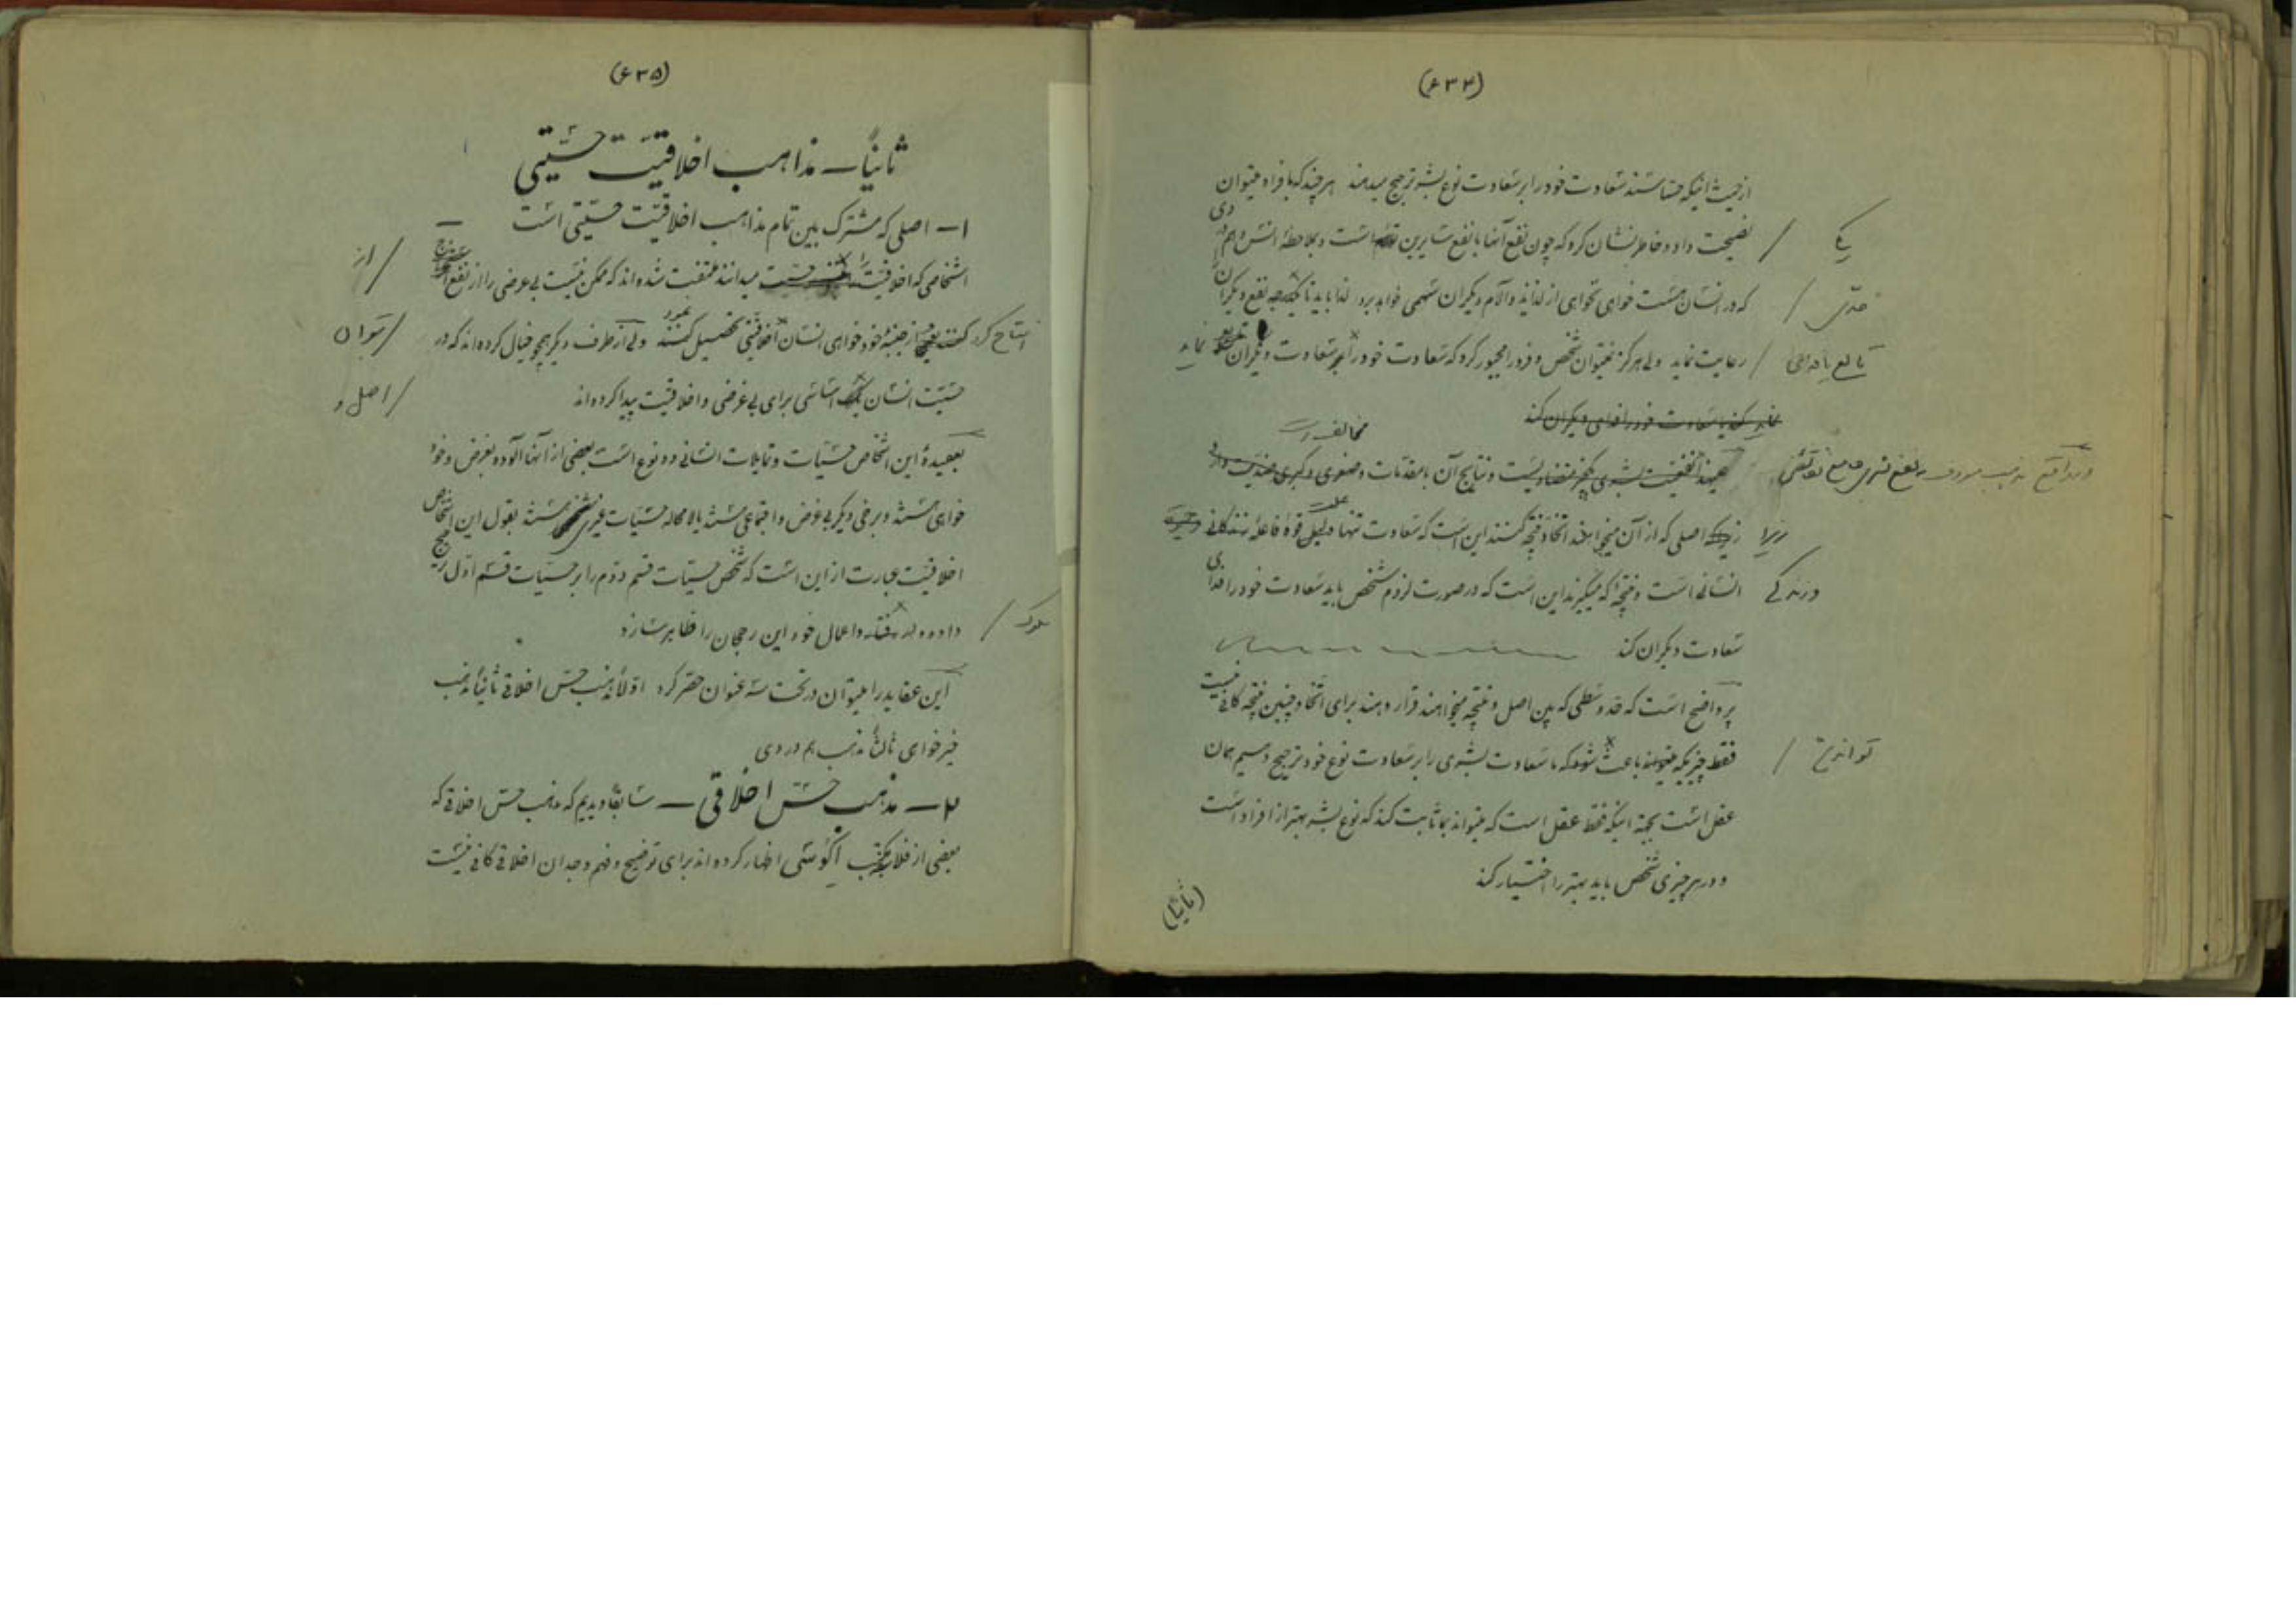 (۶۳۴)
از حیث اینکه حساسند سعادت خود را بر سعادت نوع بشر ترجیح میدهند هر چند که بافراد میتوان
نصیحت داد و خاطر نشان کرد که چون نفع آنها با نفع سایرین است و بملاحظهٔ انس و هم دردی
یکی
که در انسان هست خواهی نخواهی از لذائذ و آلام دیگران سهمی خواهد برد لذا باید نفع دیگران
حدی
رعایت نماید ولی هرگز نمیتوان شخص و فرد را مجبور کرد که سعادت خود را سعادت دیگران نماید
تابع یا فدای
نماید سعادت خود را فدای دیگران کند
در واقع مذهب معروف به نفع بشری جامع نقائض
مخالف
و نتایج آن با مقدمات و صغری و کبری
زیرا اصلی که از آن میخواهند اتخاذ نتیجه کنند این است که سعادت تنها قوهٔ فاعلهٔ
علت
در زندگی انسانی است و نتیجهٔ که میگیرند این است که در صورت لزوم شخص باید سعادت خود را فدای
سعادت دیگران کند
پر واضح است که حد وسطی که بین اصل و نتیجه میخواهند قرار دهند برای اتخاذ چنین نتیجه کافی نیست
فقط چیزیکه باعث شود که ما سعادت بشری را بر سعادت نوع خود ترجیح دهیم همان
تواند
عقل است بجهة اینکه فقط عقل است که میتواند بما ثابت کند که نوع بشر بهتر از افراد است
و در هر چیزی شخص باید بهتر را اختیار کند
(ثانیا)
(۶۳۵)
ثانیاً ـ مذاهب اخلاقیت حسیتی
۱ـ اصلی که مشترک بین تمام مذاهب اخلاقیت حسیتی است ـ
اشخاصی که اخلاقیت را میدانند ملتفت شده‌اند که ممکن نیست بی غرضی را از نفع
از
استنتاج کرد از جنبهٔ خود خواهی انسان اخلاقیتی تحصیل نمود ولی از طرف دیگر همچو خیال کرده‌اند که در
بتوان
حسیت انسان اساسی برای بی غرضی و اخلاقیت پیدا کرده‌اند
اصل و
بعقیدهٔ این اشخاص حسیات و تمایلات انسانی دو نوع است بعضی از آنها آلوده بغرض و خود
خواهی هستند و برخی دیگر بی غرض و اجتماعی هستند یا لا محاله حسیات غیر شخصی هستند بقول این اشخاص
اخلاقیت عبارت از این است که شخص حسیات قسم دوّم را بر حسیات قسم اوّل ترجیح
داده و در و اعمال خود این رجحان را ظاهر سازد
سلوک
این عقاید را میتوان در تحت سه عنوان حصر کرد اوّلاً مذهب حسّ اخلاقی ثانیاً مذهب
خیر خواهی ثالثاً مذهب هم دردی
۲ـ مذهب حسّ اخلاقی ـ سابقاً دیدیم که مذهب حسّ اخلاقی که
بعضی از فلاسفه مکتب اکوسی اظهار کرده‌اند برای توضیح و فهم وجدان اخلاقی کافی نیست